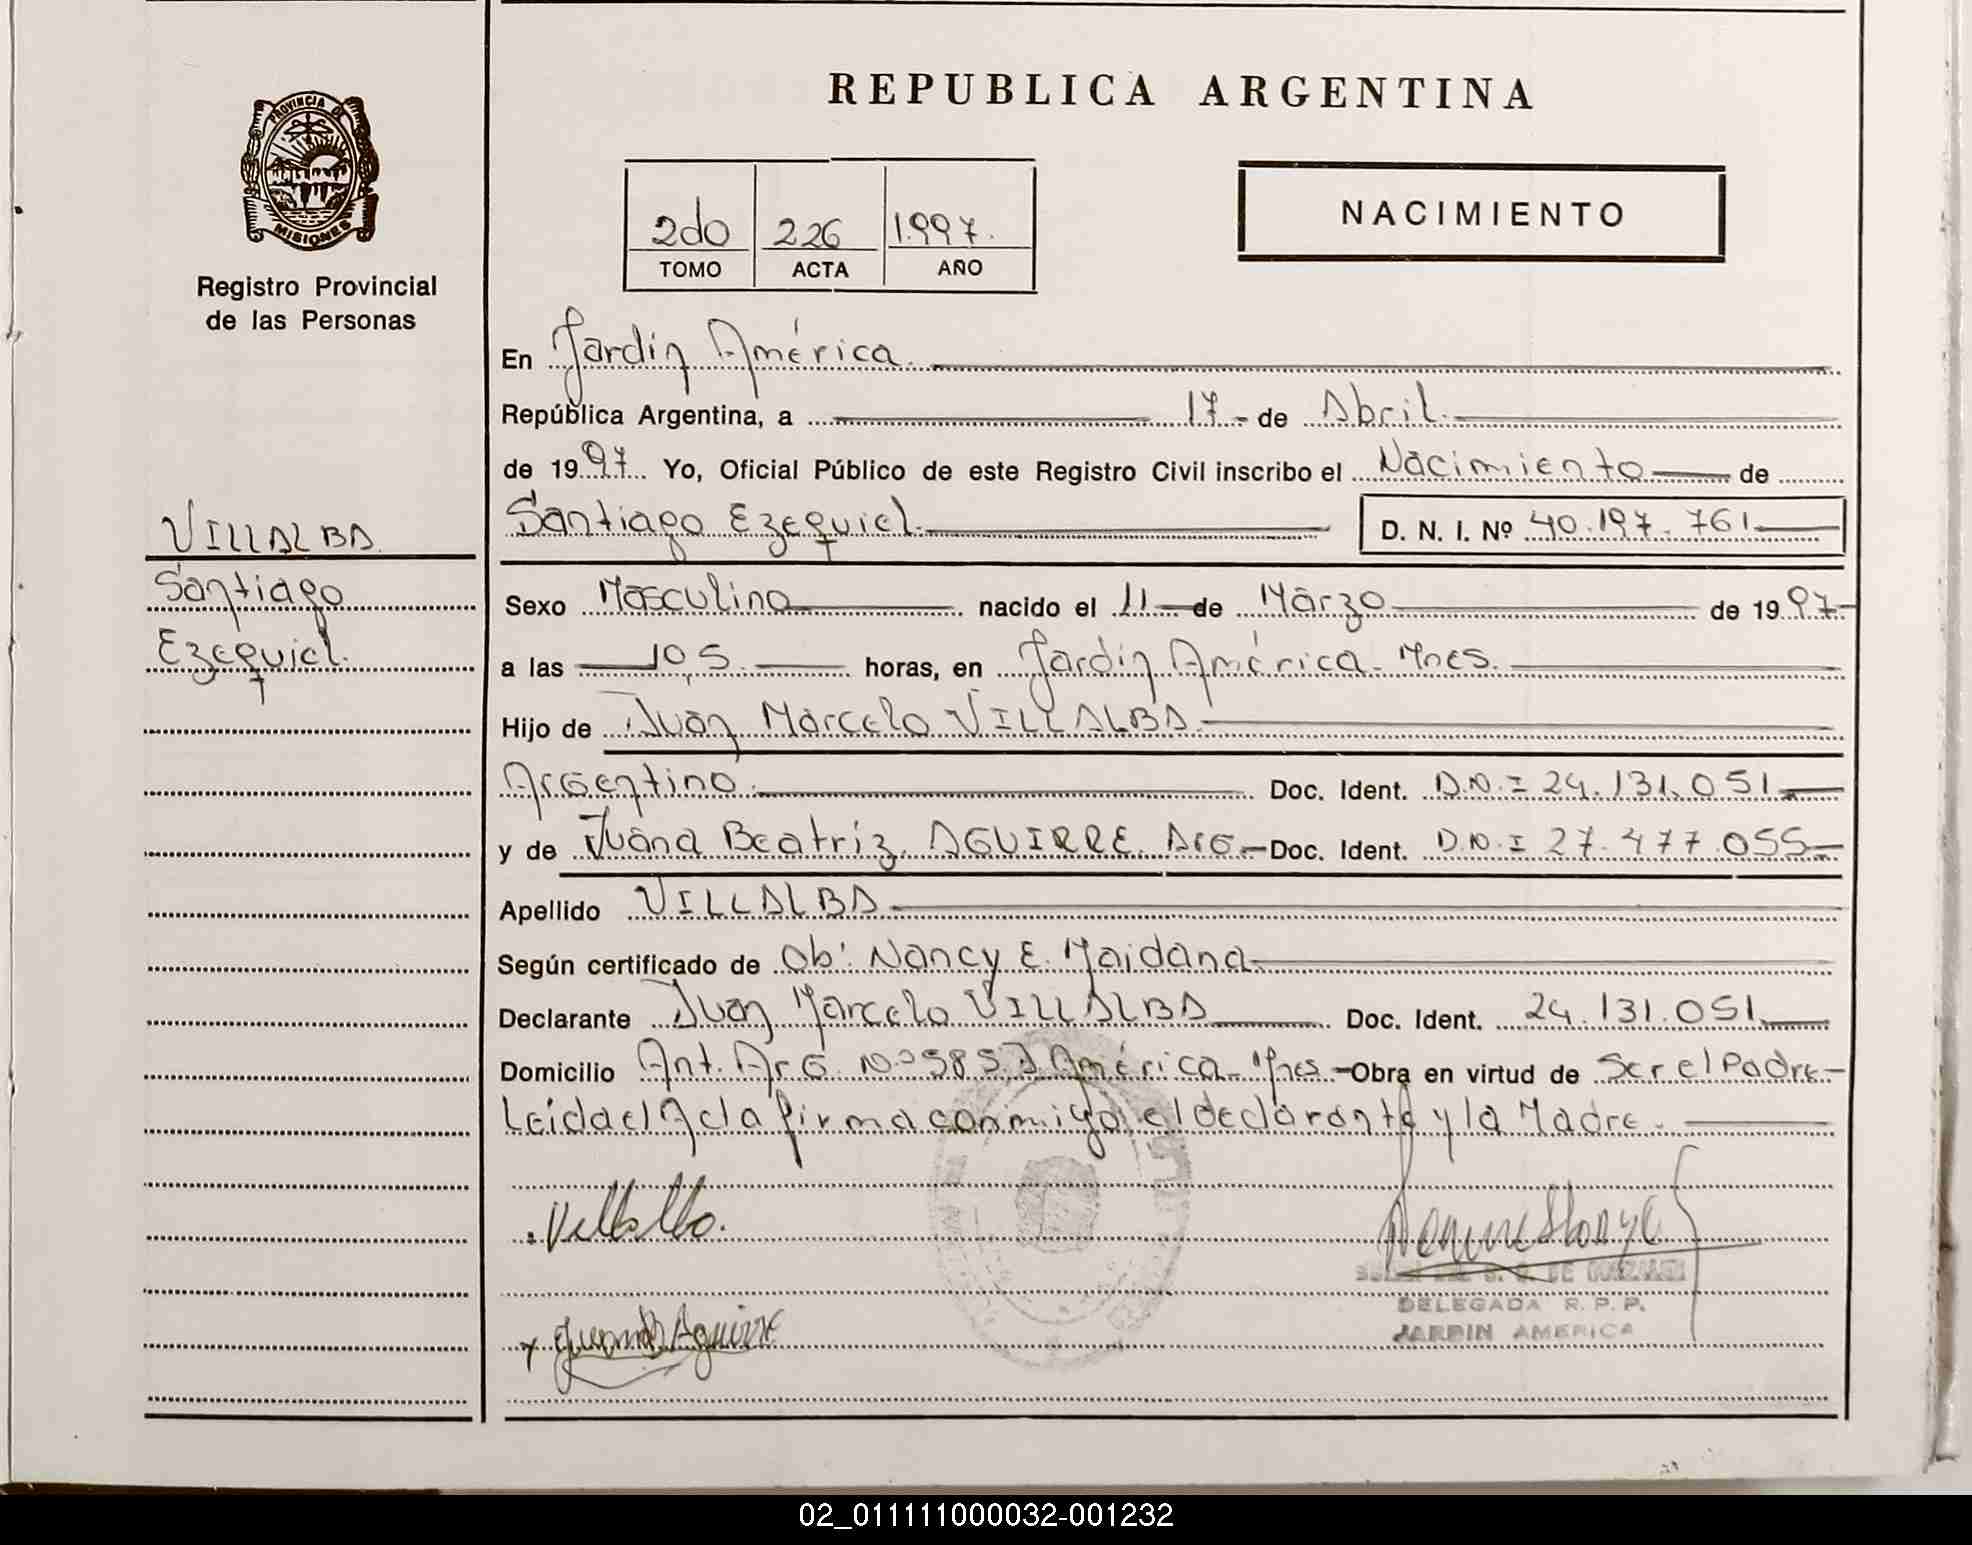 PROVINCIA DE
MISIONES
Registro Provincial
de las Personas
VILLALBA
Santiago
Ezequiel.
REPUBLICA ARGENTINA
2do 226 1.997.
TOMO ACTA AÑO
NACIMIENTO
En Jardín América.
República Argentina, a 17 de Abril.
de 1997 Yo, Oficial Público de este Registro Civil inscribo el Nacimiento de
Santiago Ezequiel. D. N. I. Nº 40.197.761
Sexo Masculino nacido el 11 de Marzo de 1997
a las 10,5 horas, en Jardín América. Mnes.
Hijo de Juan Marcelo VILLALBA
Argentino. Doc. Ident. D.N.I 24.131.051
y de Juana Beatríz AGUIRRE. Arg. Doc. Ident. D.N.I 27.477.055
Apellido VILLALBA
Según certificado de Ob: Nancy E. Maidana
Declarante Juan Marcelo VILLALBA Doc. Ident. 24.131.051
Domicilio Ant. Arg. Nº 585 J América. Mnes. Obra en virtud de Ser el Padre
Leída el Acta firma conmigo el declarante y la Madre.
Villalba.
Juana B Aguirre
DE
DELEGADA R. P. P.
JARDIN AMERICA
02_011111000032-001232